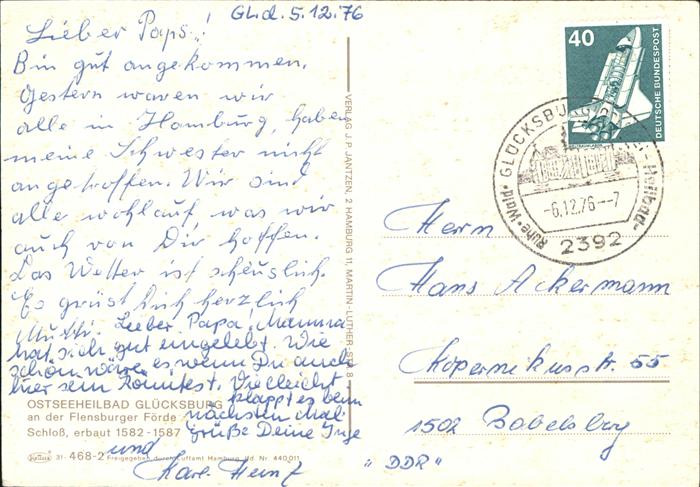 Glbd. 5.12.76
Lieber Paps!
Bin gut angekommen.
Gestern waren wir
alle in Hamburg, haben
meine Schwester nicht
angetroffen. Wir sind
alle wohlauf, was wir
auch von Dir hoffen.
Das Wetter ist scheuslich.
Es grüst Dich herzlich
Mutti. Lieber Papa! Mamma
hat sich gut eingelebt. Wie
schön wäre es, wenn Du auch
hier sein könntest. Vielleicht
klappt es beim
nächsten Mal
Grüße Deine Inge
und
Karl-Heinz
OSTSEEHEILBAD GLÜCKSBURG
an der Flensburger Förde
Schloß, erbaut 1582-1587
31- 468-2 Freigegeben durch Luftamt Hamburg, lfd Nr. 440011
VERLAG J.P. JANTZEN, 2 HAMBURG 11, MARTIN-LUTHER-STR. 8
40
DEUTSCHE BUNDESPOST
GLÜCKSBURG
Ruhe · Wald · Heilbad
-6.12.76--7
2392
Herrn
Hans Ackermann
Kopernikusstr. 55
1502 Babelsberg
"DDR"